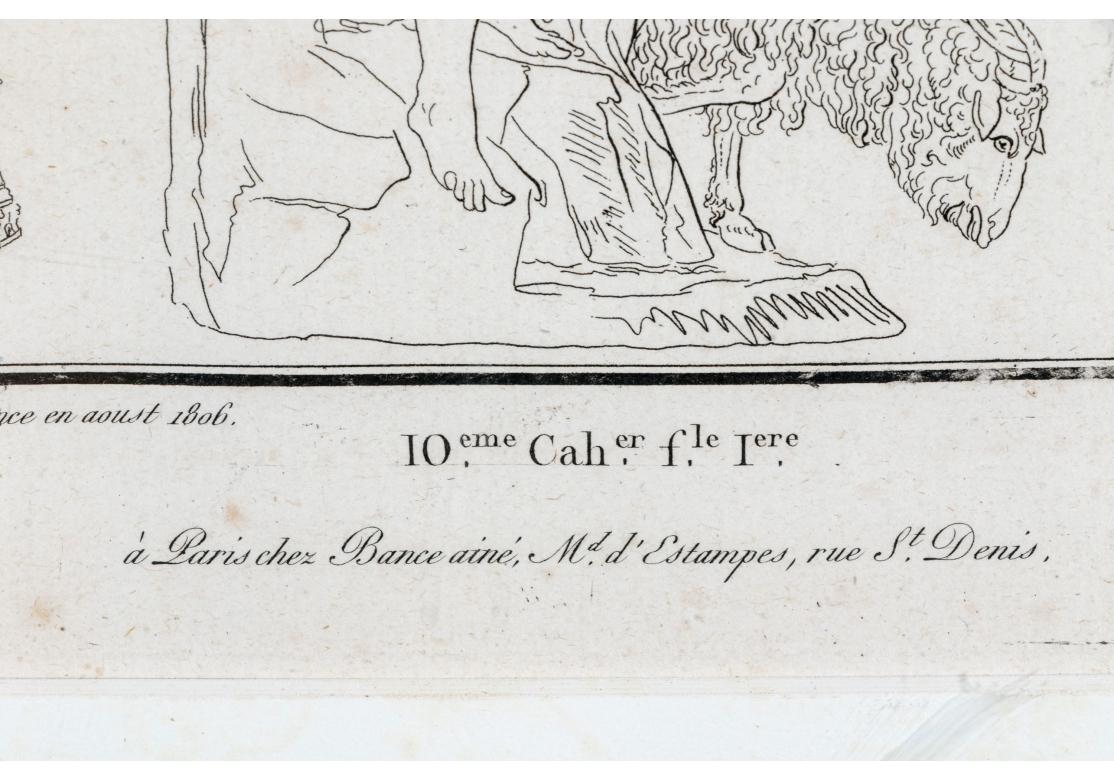 en aoust 1806.
10.eme Cah.er f.le 1ere.
à Paris chez Bance ainé, M.d d'Estampes, rue S.t Denis,